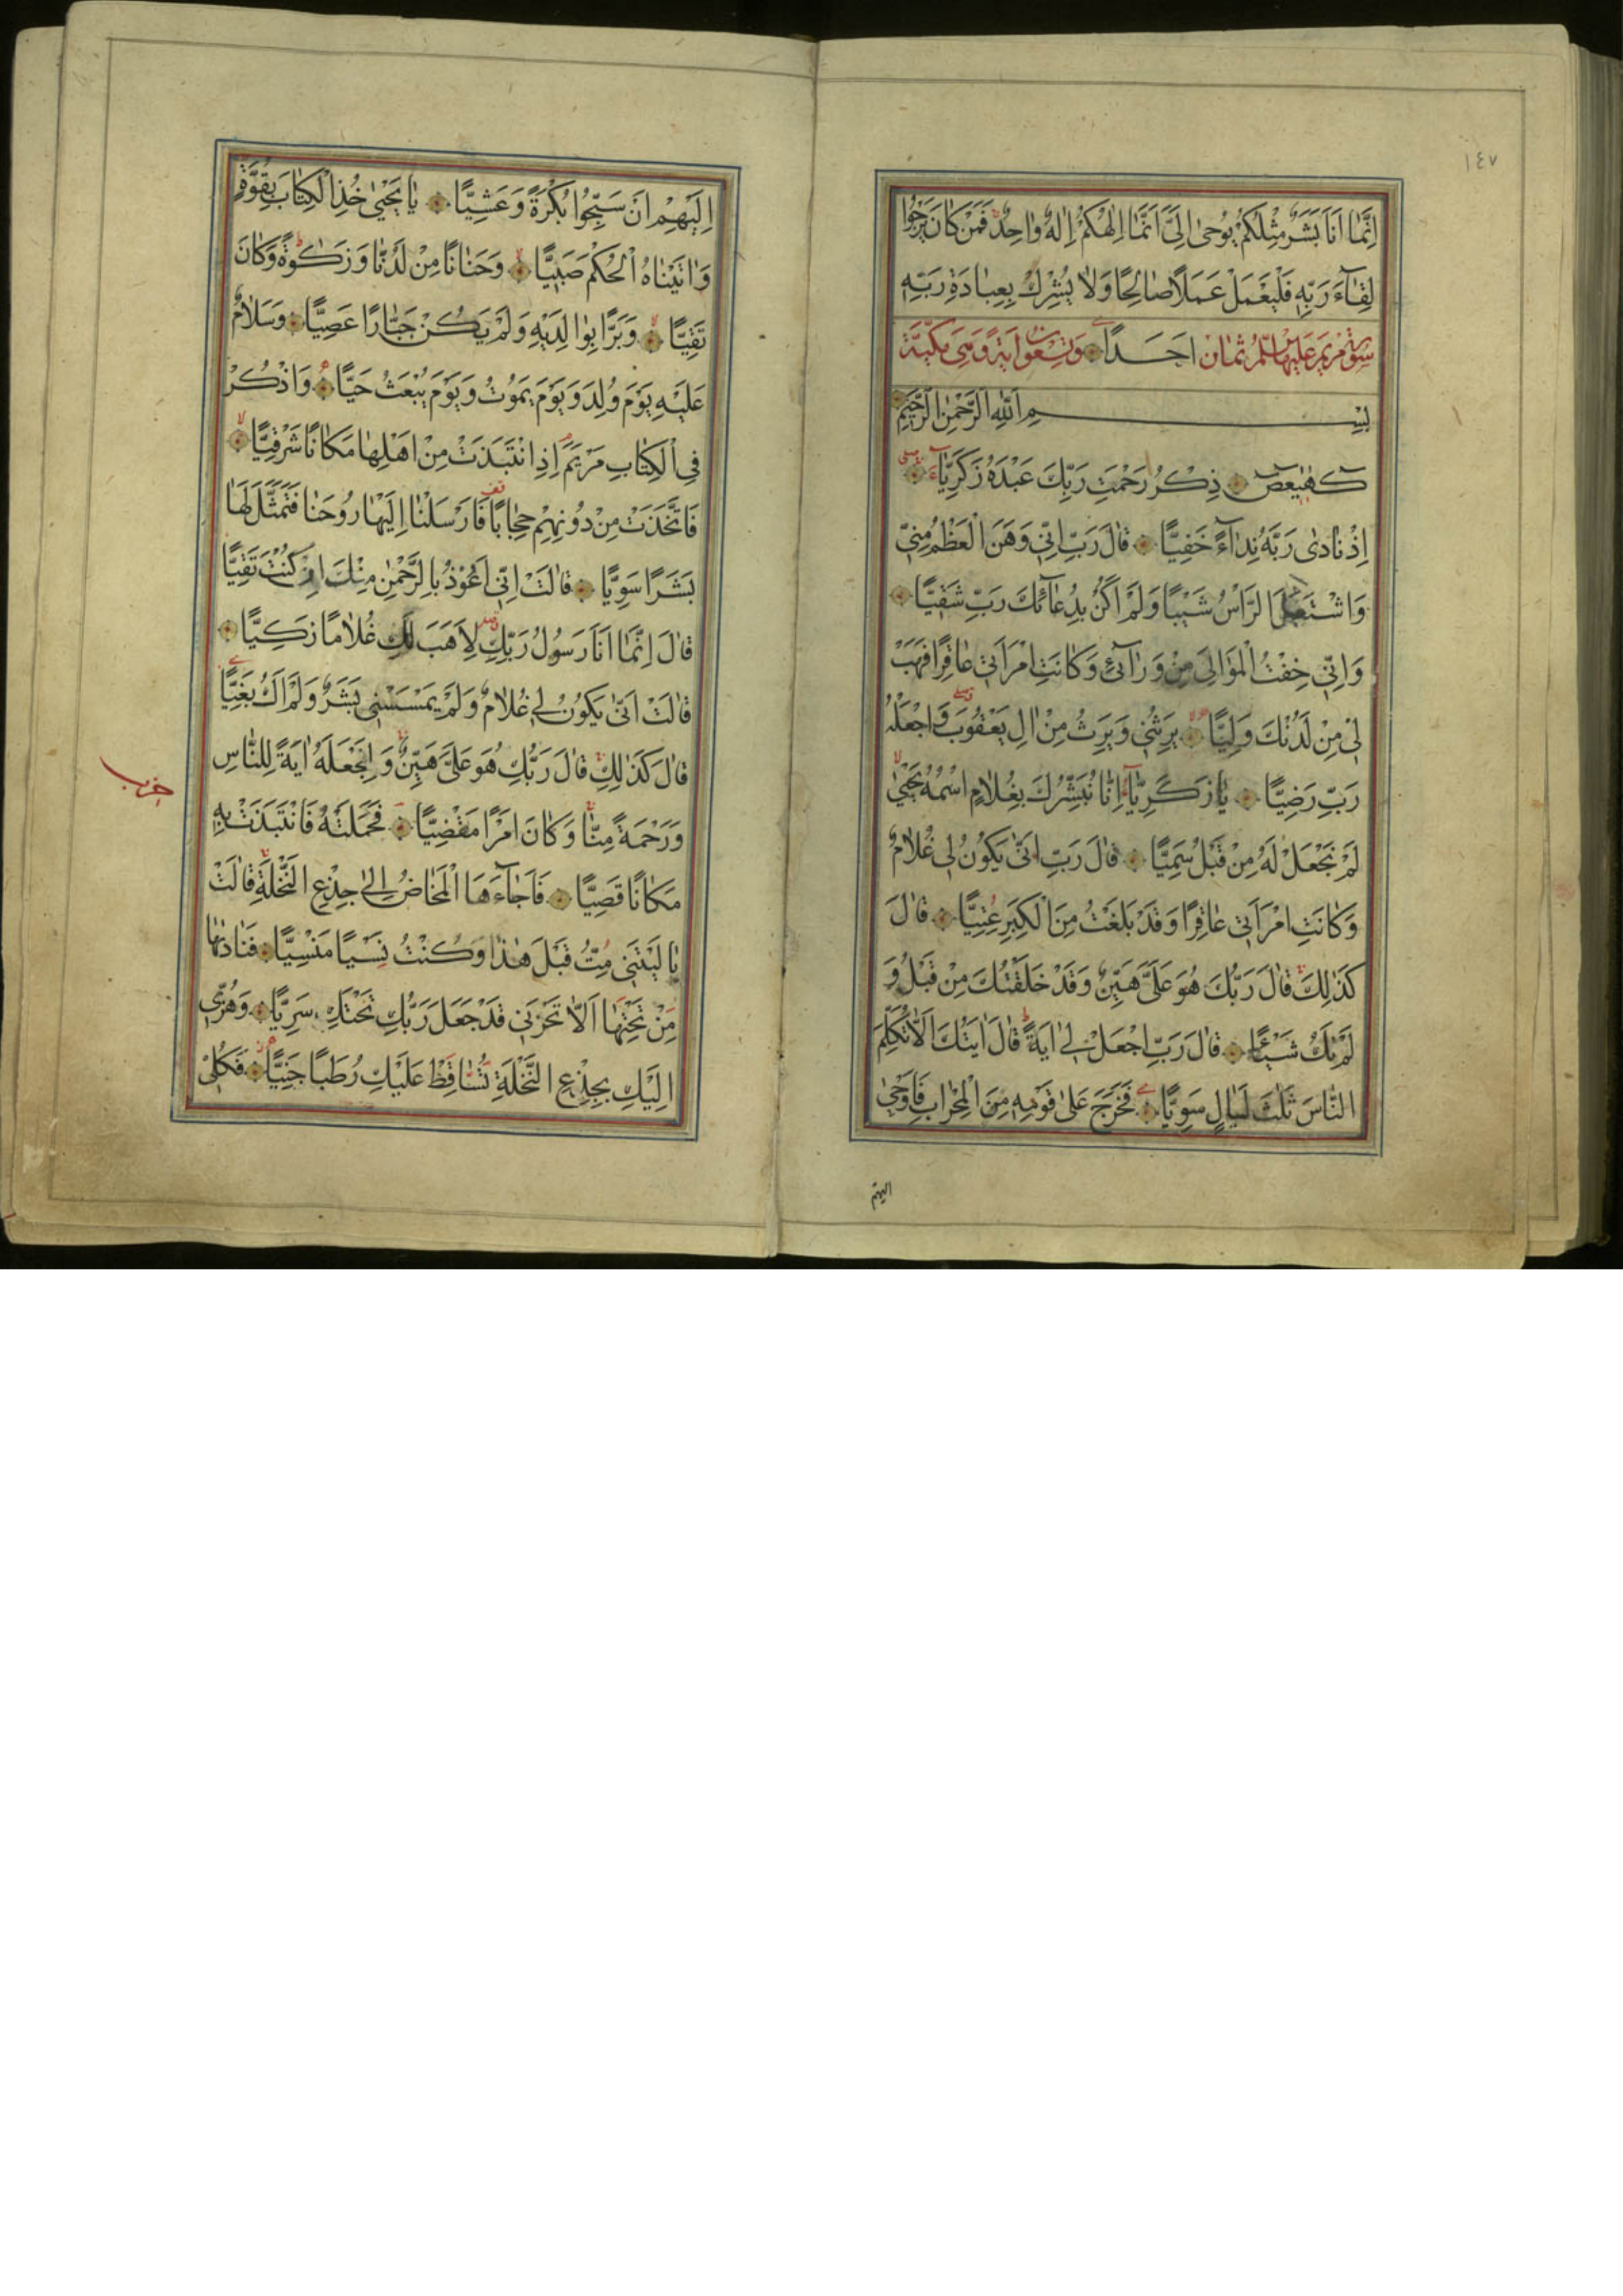 ١٤٧
اِنَّمَا اَنَا بَشَرٌ مِثْلُكُمْ يُوحٰى اِلَيَّ اَنَّمَا اِلٰهُكُمْ اِلٰهٌ وَاحِدٌ فَمَنْ كَانَ يَرْجُوا
لِقَآءَ رَبِّهِ فَلْيَعْمَلْ عَمَلًا صَالِحًا وَلَا يُشْرِكْ بِعِبَادَةِ رَبِّهِ
سورة مريم عليها السلم ثمان اَحَدًا وتسعون اية وهى مكية
بِسْمِ اللّٰهِ الرَّحْمٰنِ الرَّحِيمِ
كٓهٰيٰعٓصٓ ذِكْرُ رَحْمَتِ رَبِّكَ عَبْدَهُ زَكَرِيَّآءَ
اِذْ نَادٰى رَبَّهُ نِدَآءً خَفِيًّا قَالَ رَبِّ اِنِّي وَهَنَ الْعَظْمُ مِنِّي
وَاشْتَعَلَ الرَّاْسُ شَيْبًا وَلَمْ اَكُنْ بِدُعَائِكَ رَبِّ شَقِيًّا
وَاِنِّي خِفْتُ الْمَوَالِيَ مِنْ وَرَآئِي وَكَانَتِ امْرَاَتِي عَاقِرًا فَهَبْ
لِي مِنْ لَدُنْكَ وَلِيًّا يَرِثُنِي وَيَرِثُ مِنْ اٰلِ يَعْقُوبَ وَاجْعَلْهُ
رَبِّ رَضِيًّا يَا زَكَرِيَّآ اِنَّا نُبَشِّرُكَ بِغُلَامٍ اسْمُهُ يَحْيٰى
لَمْ نَجْعَلْ لَهُ مِنْ قَبْلُ سَمِيًّا قَالَ رَبِّ اَنّٰى يَكُونُ لِي غُلَامٌ
وَكَانَتِ امْرَاَتِي عَاقِرًا وَقَدْ بَلَغْتُ مِنَ الْكِبَرِ عِتِيًّا قَالَ
كَذٰلِكَ قَالَ رَبُّكَ هُوَ عَلَيَّ هَيِّنٌ وَقَدْ خَلَقْتُكَ مِنْ قَبْلُ وَ
لَمْ تَكُ شَيْئًا قَالَ رَبِّ اجْعَلْ لِي اٰيَةً قَالَ اٰيَتُكَ اَلَّا تُكَلِّمَ
النَّاسَ ثَلٰثَ لَيَالٍ سَوِيًّا فَخَرَجَ عَلٰى قَوْمِهِ مِنَ الْمِحْرَابِ فَاَوْحٰى
اليهم
اِلَيْهِمْ اَنْ سَبِّحُوا بُكْرَةً وَعَشِيًّا يَا يَحْيٰى خُذِ الْكِتَابَ بِقُوَّةٍ
وَاٰتَيْنَاهُ الْحُكْمَ صَبِيًّا وَحَنَانًا مِنْ لَدُنَّا وَزَكٰوةً وَكَانَ
تَقِيًّا وَبَرًّا بِوَالِدَيْهِ وَلَمْ يَكُنْ جَبَّارًا عَصِيًّا وَسَلَامٌ
عَلَيْهِ يَوْمَ وُلِدَ وَيَوْمَ يَمُوتُ وَيَوْمَ يُبْعَثُ حَيًّا وَاذْكُرْ
فِي الْكِتَابِ مَرْيَمَ اِذِ انْتَبَذَتْ مِنْ اَهْلِهَا مَكَانًا شَرْقِيًّا
فَاتَّخَذَتْ مِنْ دُونِهِمْ حِجَابًا فَاَرْسَلْنَا اِلَيْهَا رُوحَنَا فَتَمَثَّلَ لَهَا
بَشَرًا سَوِيًّا قَالَتْ اِنِّي اَعُوذُ بِالرَّحْمٰنِ مِنْكَ اِنْ كُنْتَ تَقِيًّا
قَالَ اِنَّمَا اَنَا رَسُولُ رَبِّكِ لِاَهَبَ لَكِ غُلَامًا زَكِيًّا
قَالَتْ اَنّٰى يَكُونُ لِي غُلَامٌ وَلَمْ يَمْسَسْنِي بَشَرٌ وَلَمْ اَكُ بَغِيًّا
قَالَ كَذٰلِكِ قَالَ رَبُّكِ هُوَ عَلَيَّ هَيِّنٌ وَلِنَجْعَلَهُ اٰيَةً لِلنَّاسِ
حزب
وَرَحْمَةً مِنَّا وَكَانَ اَمْرًا مَقْضِيًّا فَحَمَلَتْهُ فَانْتَبَذَتْ بِهِ
مَكَانًا قَصِيًّا فَاَجَآءَهَا الْمَخَاضُ اِلٰى جِذْعِ النَّخْلَةِ قَالَتْ
يَا لَيْتَنِي مِتُّ قَبْلَ هٰذَا وَكُنْتُ نَسْيًا مَنْسِيًّا فَنَادٰىهَا
مِنْ تَحْتِهَا اَلَّا تَحْزَنِي قَدْ جَعَلَ رَبُّكِ تَحْتَكِ سَرِيًّا وَهُزِّي
اِلَيْكِ بِجِذْعِ النَّخْلَةِ تُسَاقِطْ عَلَيْكِ رُطَبًا جَنِيًّا فَكُلِي